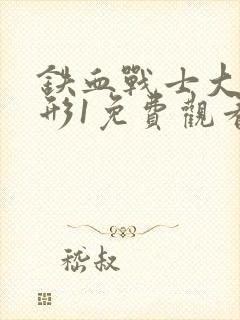 鐵血戰士大
形1免費觀看
嵇叔